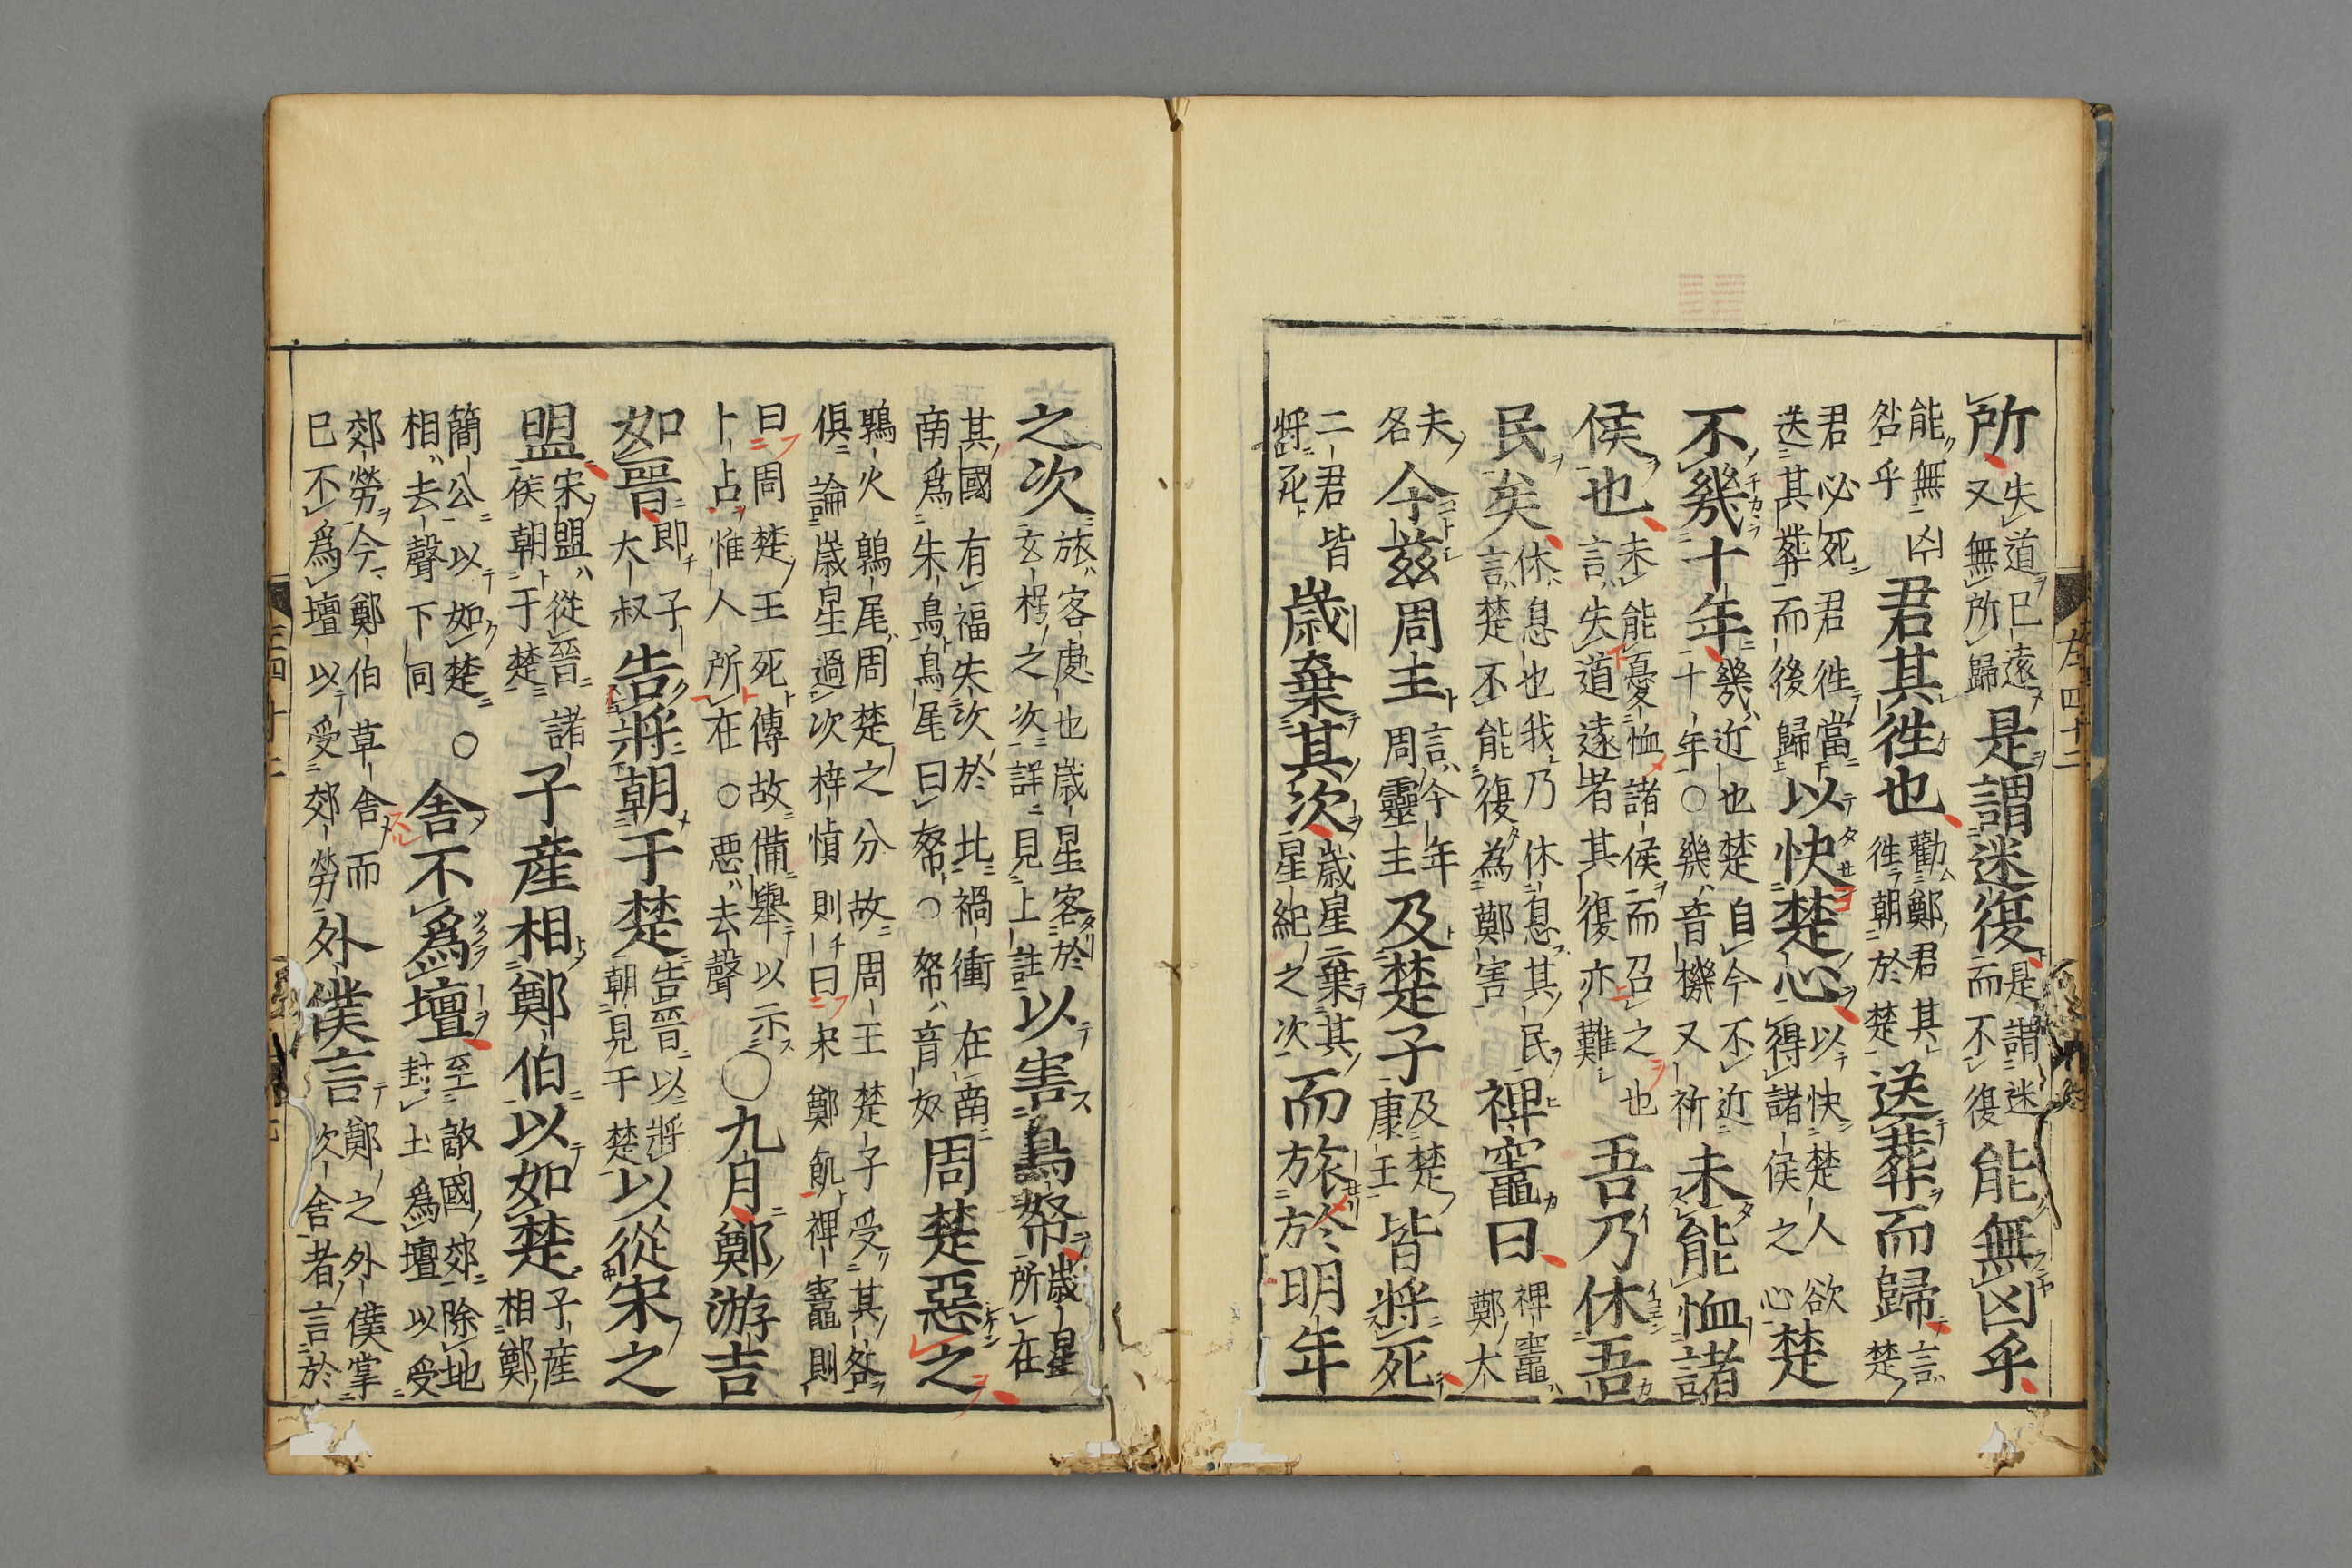 所失道已遠又無所歸是謂迷復是謂迷而不復能無凶乎
能無凶咎乎君其徃也勸鄭君其徃朝於楚送葬而歸言楚
君必死君徃當送其葬而後歸以快楚心以快楚人欲得諸侯之心楚
不幾十年幾近也楚自今不近十年○幾音機又祈未能恤諸
侯也未能憂恤諸侯而召之也言失道遠者其復亦難吾乃休吾
民矣休息也我乃休息其民言楚不能復為鄭害裨竈曰裨竈鄭大
夫名今茲周王言今年周靈王及楚子及楚康王皆將死
二君皆將死歲棄其次歲星棄其星紀之次而旅於明年
之次旅客處也歲星客於玄枵之次詳見上註以害鳥帑歲星所在
其國有福失次於北禍衝在南南爲朱鳥鳥尾曰帑○帑音奴周楚惡之
鶉火鶉尾周楚之分故周王楚子受其咎俱論歲星過次梓愼則曰宋鄭飢裨竈則
曰周楚王死傳故備舉以示卜占惟人所在○惡去聲○九月鄭游吉
如晉即子大叔告將朝于楚告晉以將朝見于楚以從宋之
盟宋盟從晉諸侯朝于楚子産相鄭伯以如楚子産相鄭
簡公以如楚○相去聲下同舍不爲壇至敵國郊除地封土爲壇以受
郊勞今鄭伯草舍而已不爲壇以受郊勞外僕言鄭之外僕掌次舍者言於